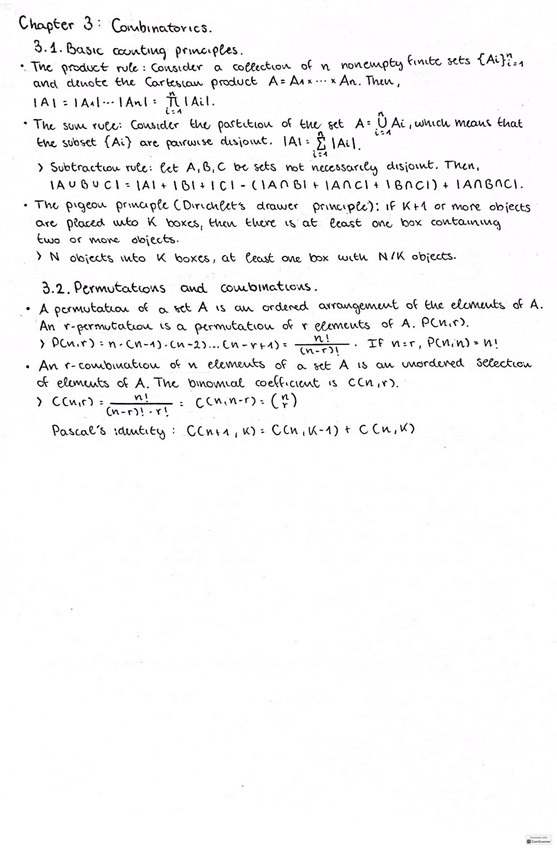 Chapter 3: Combinatorics.
3.1. Basic counting principles.
• The product rule: Consider a collection of n nonempty finite sets {Ai}ⁿᵢ₌₁
and denote the Cartesian product A = A1 × ⋯ × An. Then,
|A| = |A1| ⋯ |An| = ∏ⁿᵢ₌₁ |Ai|.
• The sum rule: Consider the partition of the set A = ⋃ⁿᵢ₌₁ Ai, which means that
the subset {Ai} are pairwise disjoint. |A| = ∑ⁿᵢ₌₁ |Ai|.
> Subtraction rule: let A, B, C be sets not necessarily disjoint. Then,
|A∪B∪C| = |A| + |B| + |C| - (|A∩B| + |A∩C| + |B∩C|) + |A∩B∩C|.
• The pigeon principle (Dirichlet's drawer principle): if K+1 or more objects
are placed into K boxes, then there is at least one box containing
two or more objects.
> N objects into K boxes, at least one box with N/K objects.
3.2. Permutations and combinations.
• A permutation of a set A is an ordered arrangement of the elements of A.
An r-permutation is a permutation of r elements of A. P(n,r).
> P(n,r) = n·(n-1)·(n-2)...(n-r+1) = n!/(n-r)! . If n=r, P(n,n) = n!
• An r-combination of n elements of a set A is an unordered selection
of elements of A. The binomial coefficient is C(n,r).
> C(n,r) = n!/((n-r)!·r!) = C(n,n-r) = (n r)
Pascal's identity: C(n+1, K) = C(n, K-1) + C(n, K)
CamScanner